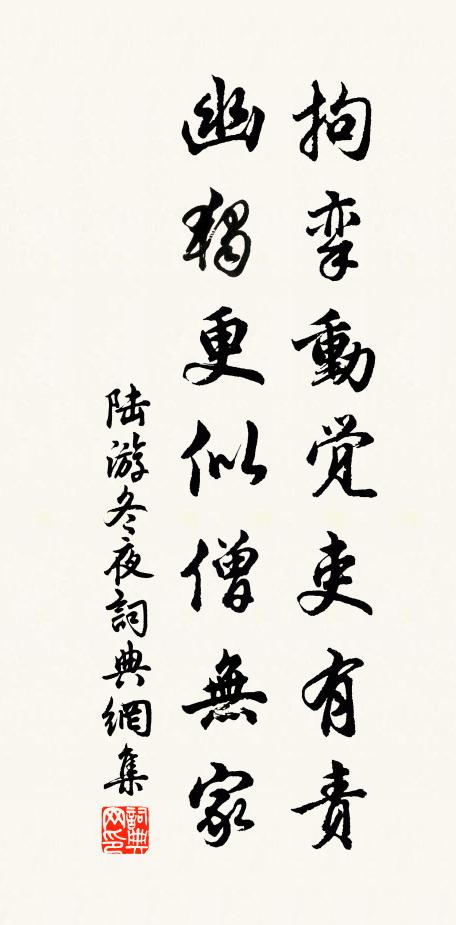 拘挛動觉吏有责
幽獨更似僧無家
陆游冬夜詞典網集
詞典网印